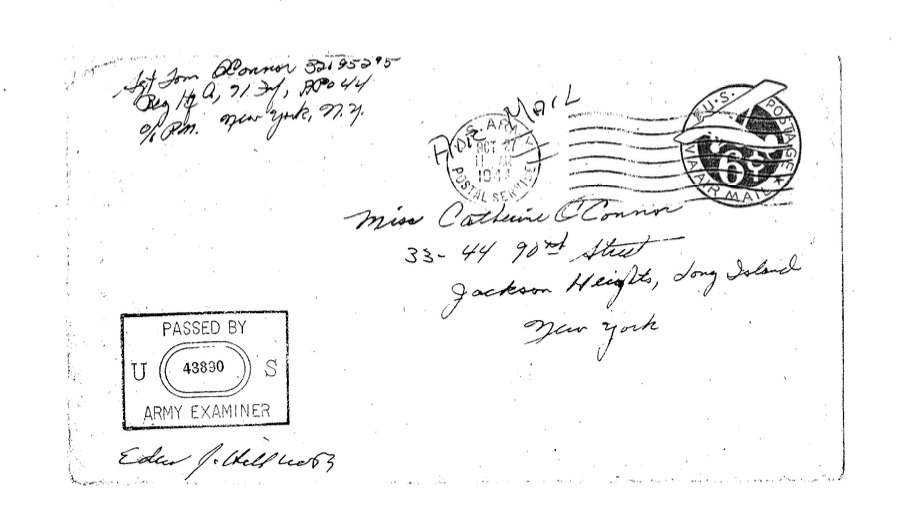 Sgt Tom O'Connor 32195295
Reg Hq Co, 71 Inf, APO 44
c/o P.M. New York, N.Y.
AIR MAIL
U.S. ARMY
OCT 27
11 AM
194
POSTAL SERVICE
U.S. POSTAGE
6¢
VIA AIR MAIL
Miss Catherine O'Connor
33-44 90th Street
Jackson Heights, Long Island
New York
PASSED BY
U 43890 S
ARMY EXAMINER